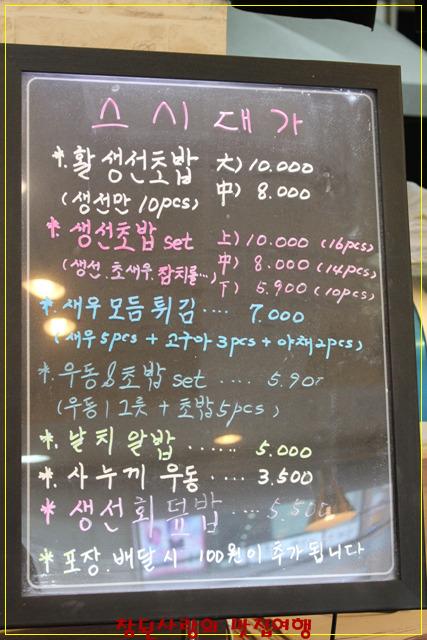 스시대가
*. 활 생선초밥 大) 10.000
(생선만 10pcs) 中) 8.000
*. 생선초밥 set 上) 10.000 (16pcs)
(생선. 초새우. 참치롤...) 中) 8.000 (14pcs)
下) 5.900 (10pcs)
*. 새우 모듬 튀김 .... 7.000
(새우 5pcs + 고구마 3pcs + 야채 2pcs)
*. 우동&초밥 set .... 5.90
(우동 1그릇 + 초밥 5pcs)
*. 날치알밥 ...... 5.000
*. 사누끼 우동 .... 3.500
* 생선회덮밥 .... 5.500
* 포장. 배달 시 100원이 추가됩니다
맛집여행